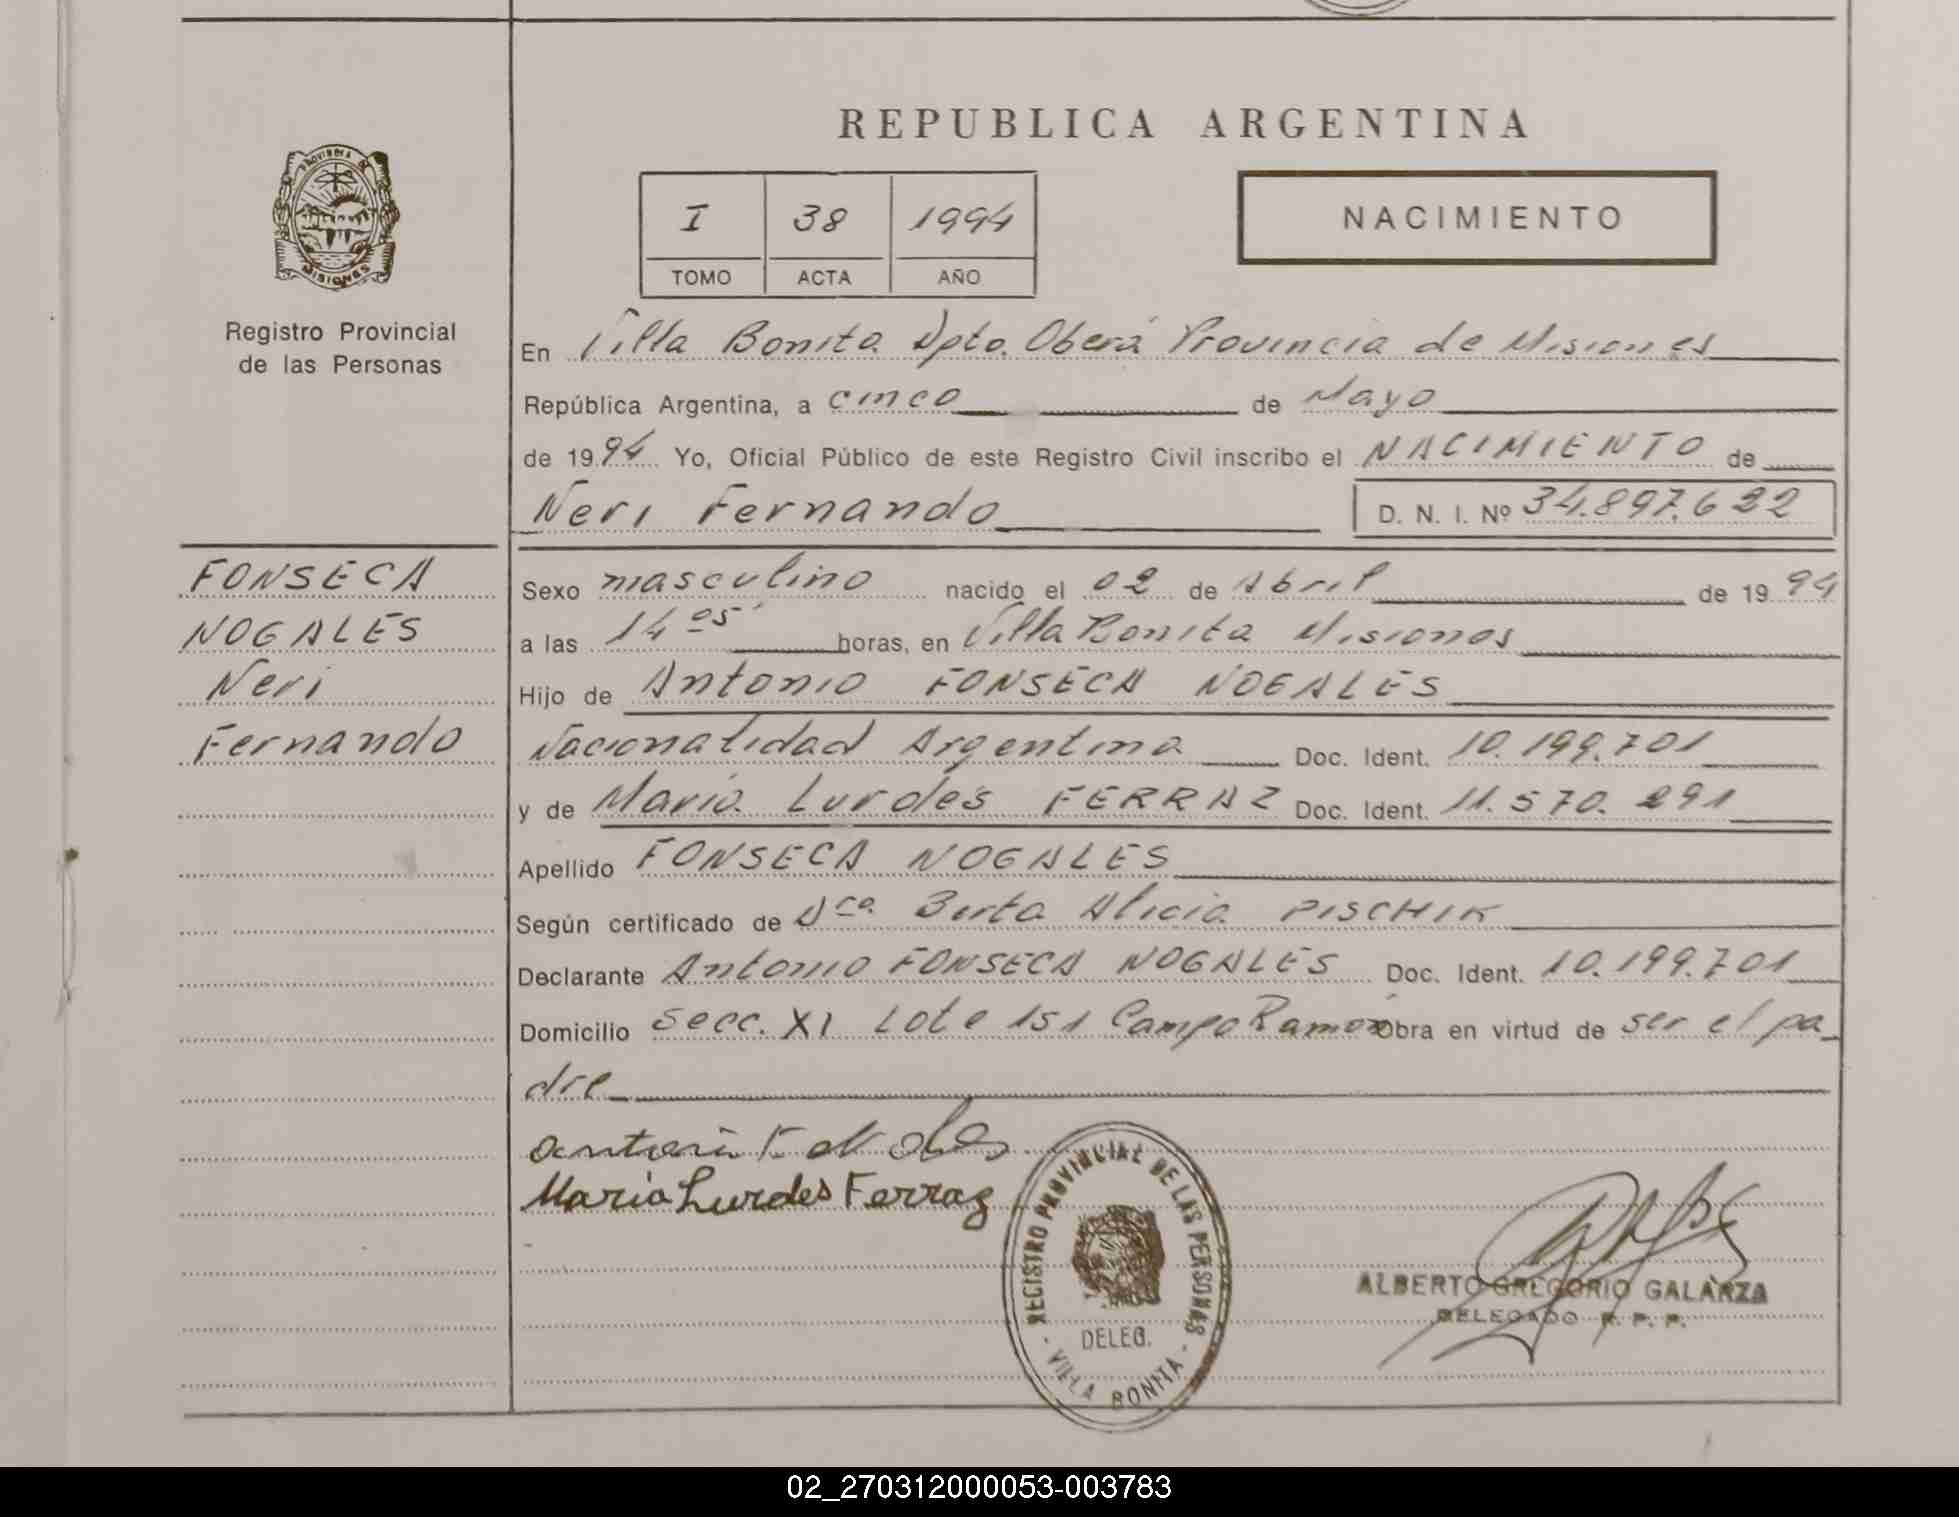 REPUBLICA ARGENTINA
PROVINCIA DE
MISIONES
Registro Provincial
de las Personas
I 38 1994
TOMO ACTA AÑO
NACIMIENTO
En Villa Bonita Dpto. Oberá Provincia de Misiones
República Argentina, a cinco de Mayo
de 1994 Yo, Oficial Público de este Registro Civil inscribo el NACIMIENTO de
Neri Fernando D. N. I. Nº 34.897.622
FONSECA
NOGALES
Neri
Fernando
Sexo masculino nacido el 02 de Abril de 1994
a las 14 05 horas, en Villa Bonita Misiones
Hijo de Antonio FONSECA NOGALES
Nacionalidad Argentina Doc. Ident. 10.199.701
y de María Lurdes FERRAZ Doc. Ident. 11.570.291
Apellido FONSECA NOGALES
Según certificado de Dca. Berta Alicia PISCHIK
Declarante Antonio FONSECA NOGALES Doc. Ident. 10.199.701
Domicilio Secc. XI Lote 151 Campo Ramón Obra en virtud de ser el pa
dre
María Lurdes Ferraz
REGISTRO PROVINCIAL DE LAS PERSONAS
DELEG.
- VILLA BONITA -
ALBERTO GREGORIO GALARZA
DELEGADO R. P. P.
02_270312000053-003783